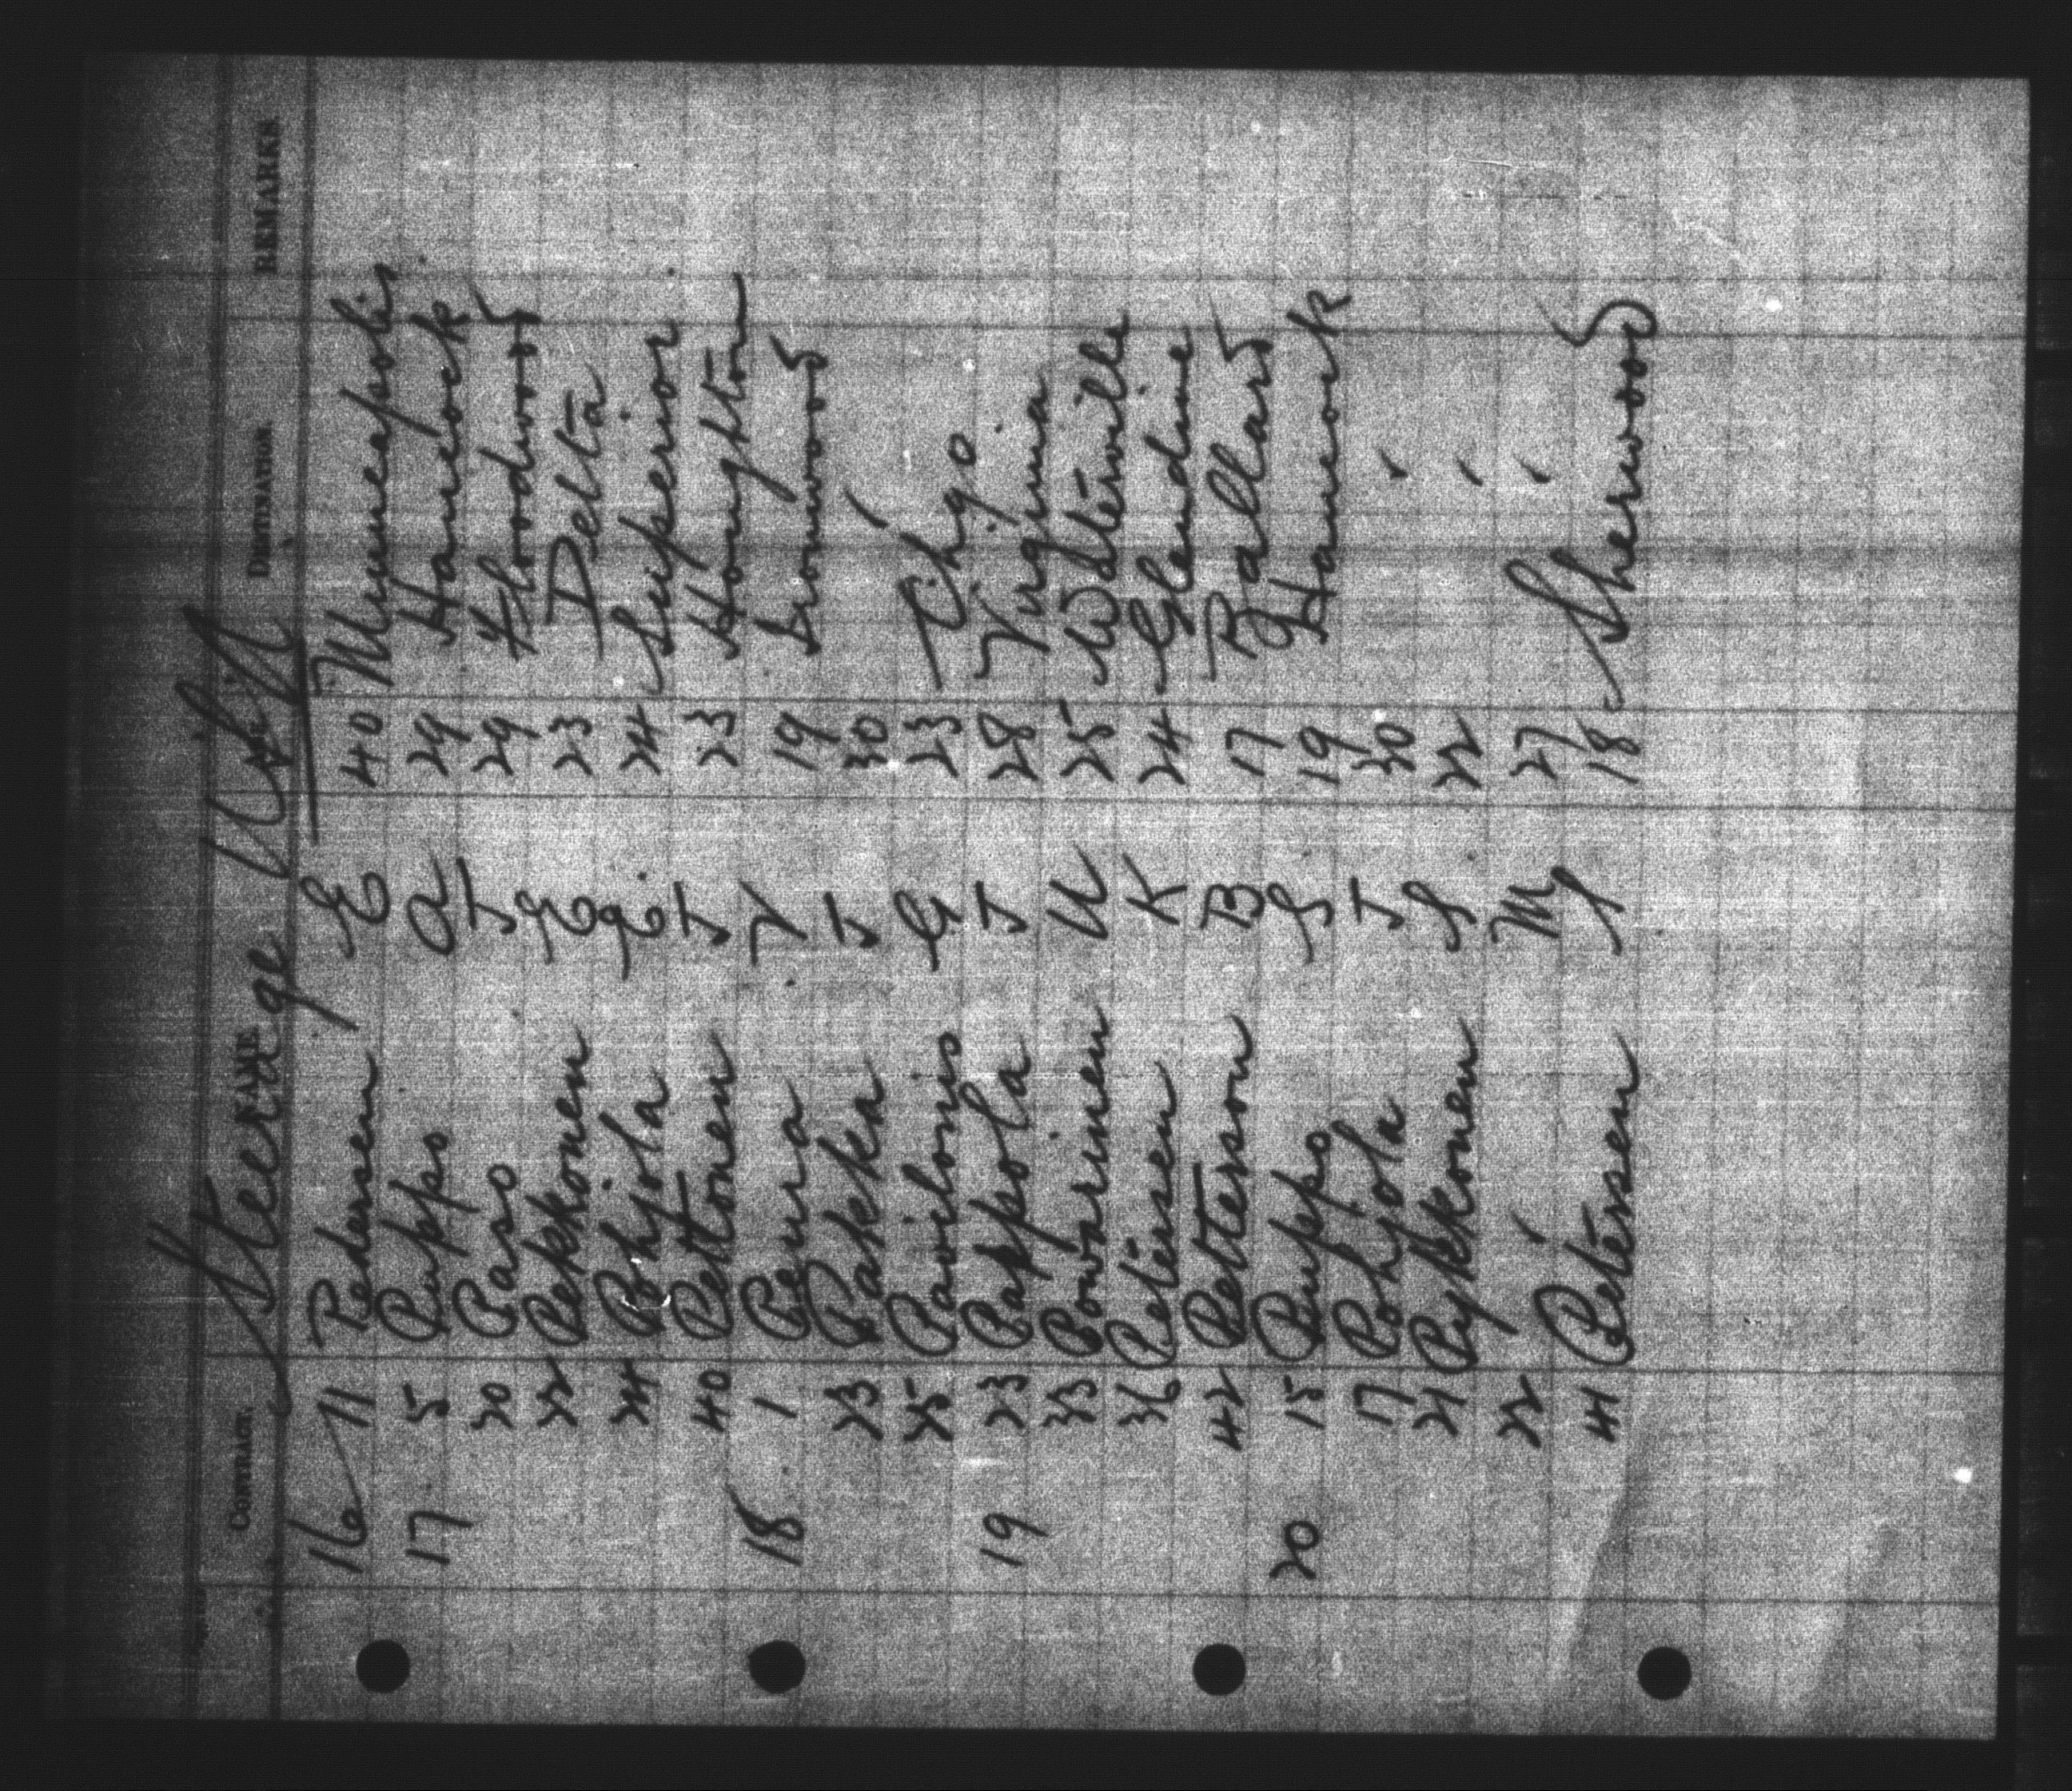 Steerage
CONTRACT. NAME DESTINATION REMARKS
16 11 Pedersen E 40 Minneapolis
17 5 Puppo A 29 Hancock
20 Paso J 29 Floodwood
22 Pekkonen E 23 Delta
24 Pohjola E 24 Superior
40 Pettonen J 23 Houghton
18 1 Peura 19 Ironwood
23 Pakka J 30 "
25 Pavilonis G 23 Chgo
19 23 Pappola J 28 Virginia
33 Povarinen U 25 Waterville
36 Petersen K 24 Glendive
42 Petterson B 17 Ballard
20 15 Puppo S 19 Hancock
17 Pohjola J 20 "
21 Pykkonen S 22 "
22 " M 27 "
41 Petersen S 18 Sherwood